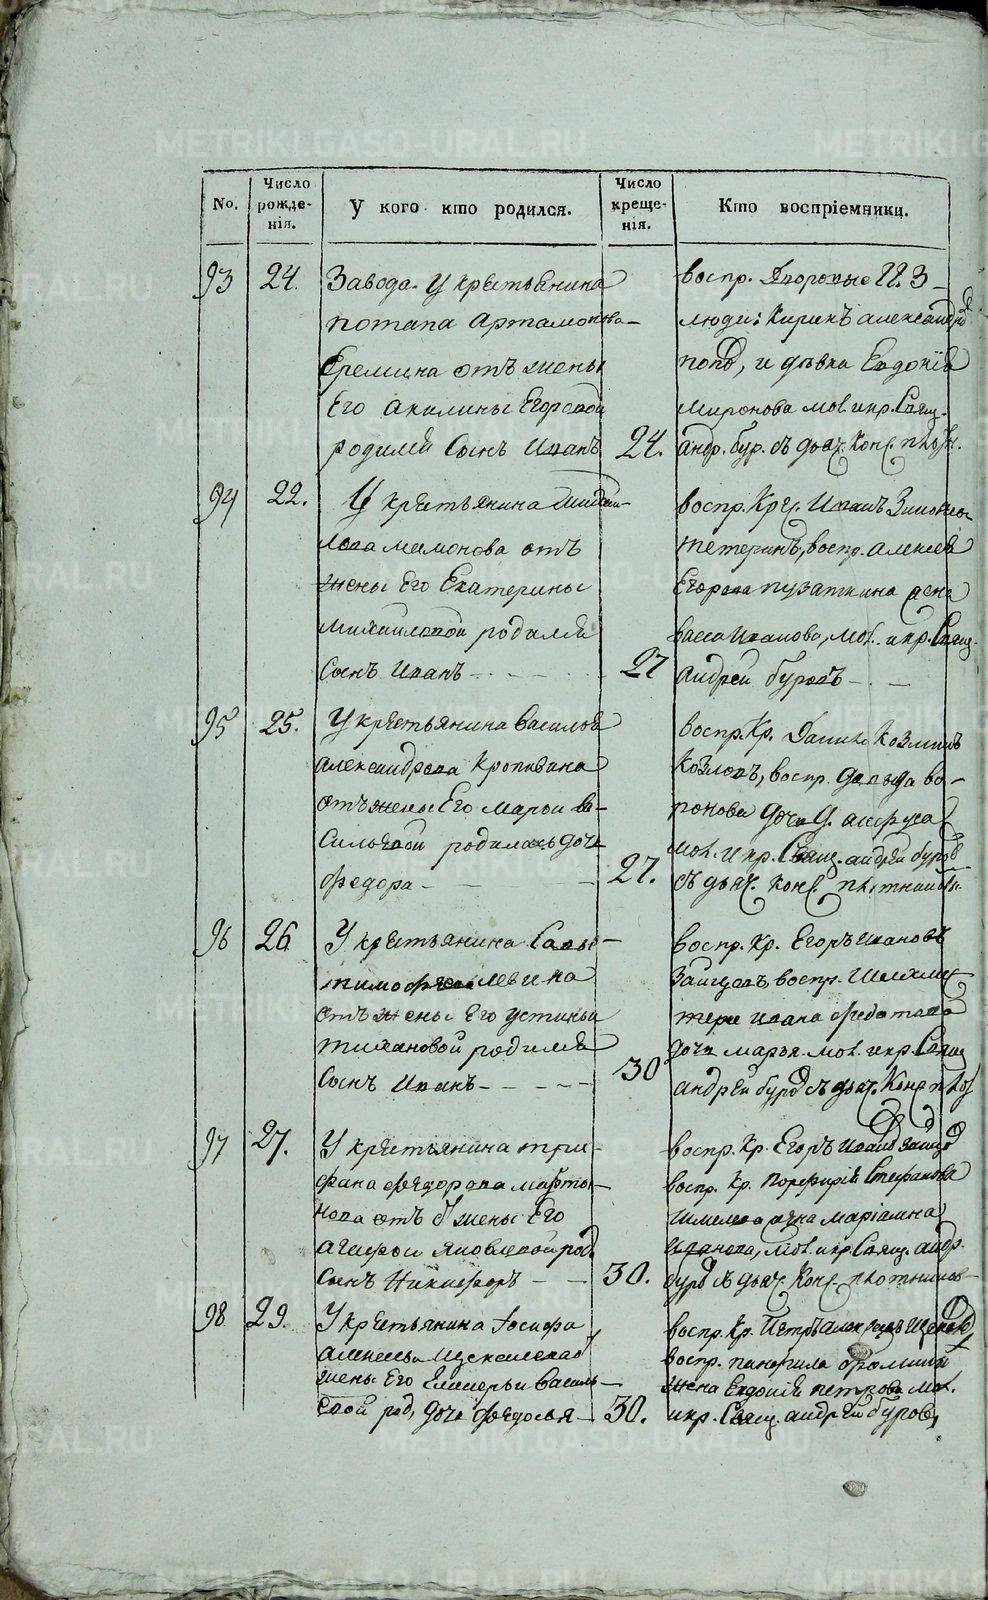 No.
Число рожденія.
У кого кто родился.
Число крещенія.
Кто воспріемники.
93
24.
Завода. У крестьянина
потапа Артамонова
Еремина отъ жены
Его Акилины Егоровой
родился Сынъ Иванъ
24.
воспр.
люди: Кирикъ Александр
и девка Евдокія
Миронова мол. и кр. Свящ.
андр. бур. съ дьяч. Конс. плот.
94
22.
У крестьянина
мамонова отъ
жены Его Екатерины
Михайловой родился
Сынъ Иванъ
27
воспр. Кр. Иванъ
тетеринъ, воспр. Алексея
Егорова пузаткина жена
васса Иванова, мол. и кр. Свящ.
Андрей буровъ
95
25.
У крестьянина Василья
Александрова Кропивина
отъ жены Его Марьи Ва-
Сильевой родилась дочь
федора
27.
воспр. Кр. Данило Козминъ
Козловъ, воспр. Давыда во-
ронова дочь д.
мол. и кр. Свящ. андрей буров
съ дьяч. Конс. плотников
96
26
У крестьянина Савы
тимофеева левина
отъ жены Его устиньи
тихановой родился
Сынъ Иванъ
30
воспр. Кр. Егоръ Ивановъ
Зайцовъ, воспр.
Ивана федотова
дочь марья. мол. и кр. Свящ
андрей буров съ дьяч. Конс плот
97
27.
У крестьянина три-
фана федорова марты-
нова отъ жены Его
Агафьи Яковлевой род.
Сынъ Никифоръ
30.
воспр. Кр. Егоръ Иванов зайцов
воспр. Кр. Порфирія Стефанова
Шмелева жена маріамна
Иванова, мол. и кр. Свящ. андр.
буров съ дьяч. Конс. плотников
98
29.
У крестьянина Іосифа
Алексеева
жены Его Василь-
евой род, дочь федосья
30.
воспр. Кр. Петръ
воспр. панфила
жена Евдокія петрова мол.
и кр. Свящ. андрей буров,
METRIKI.GASO-URAL.RU